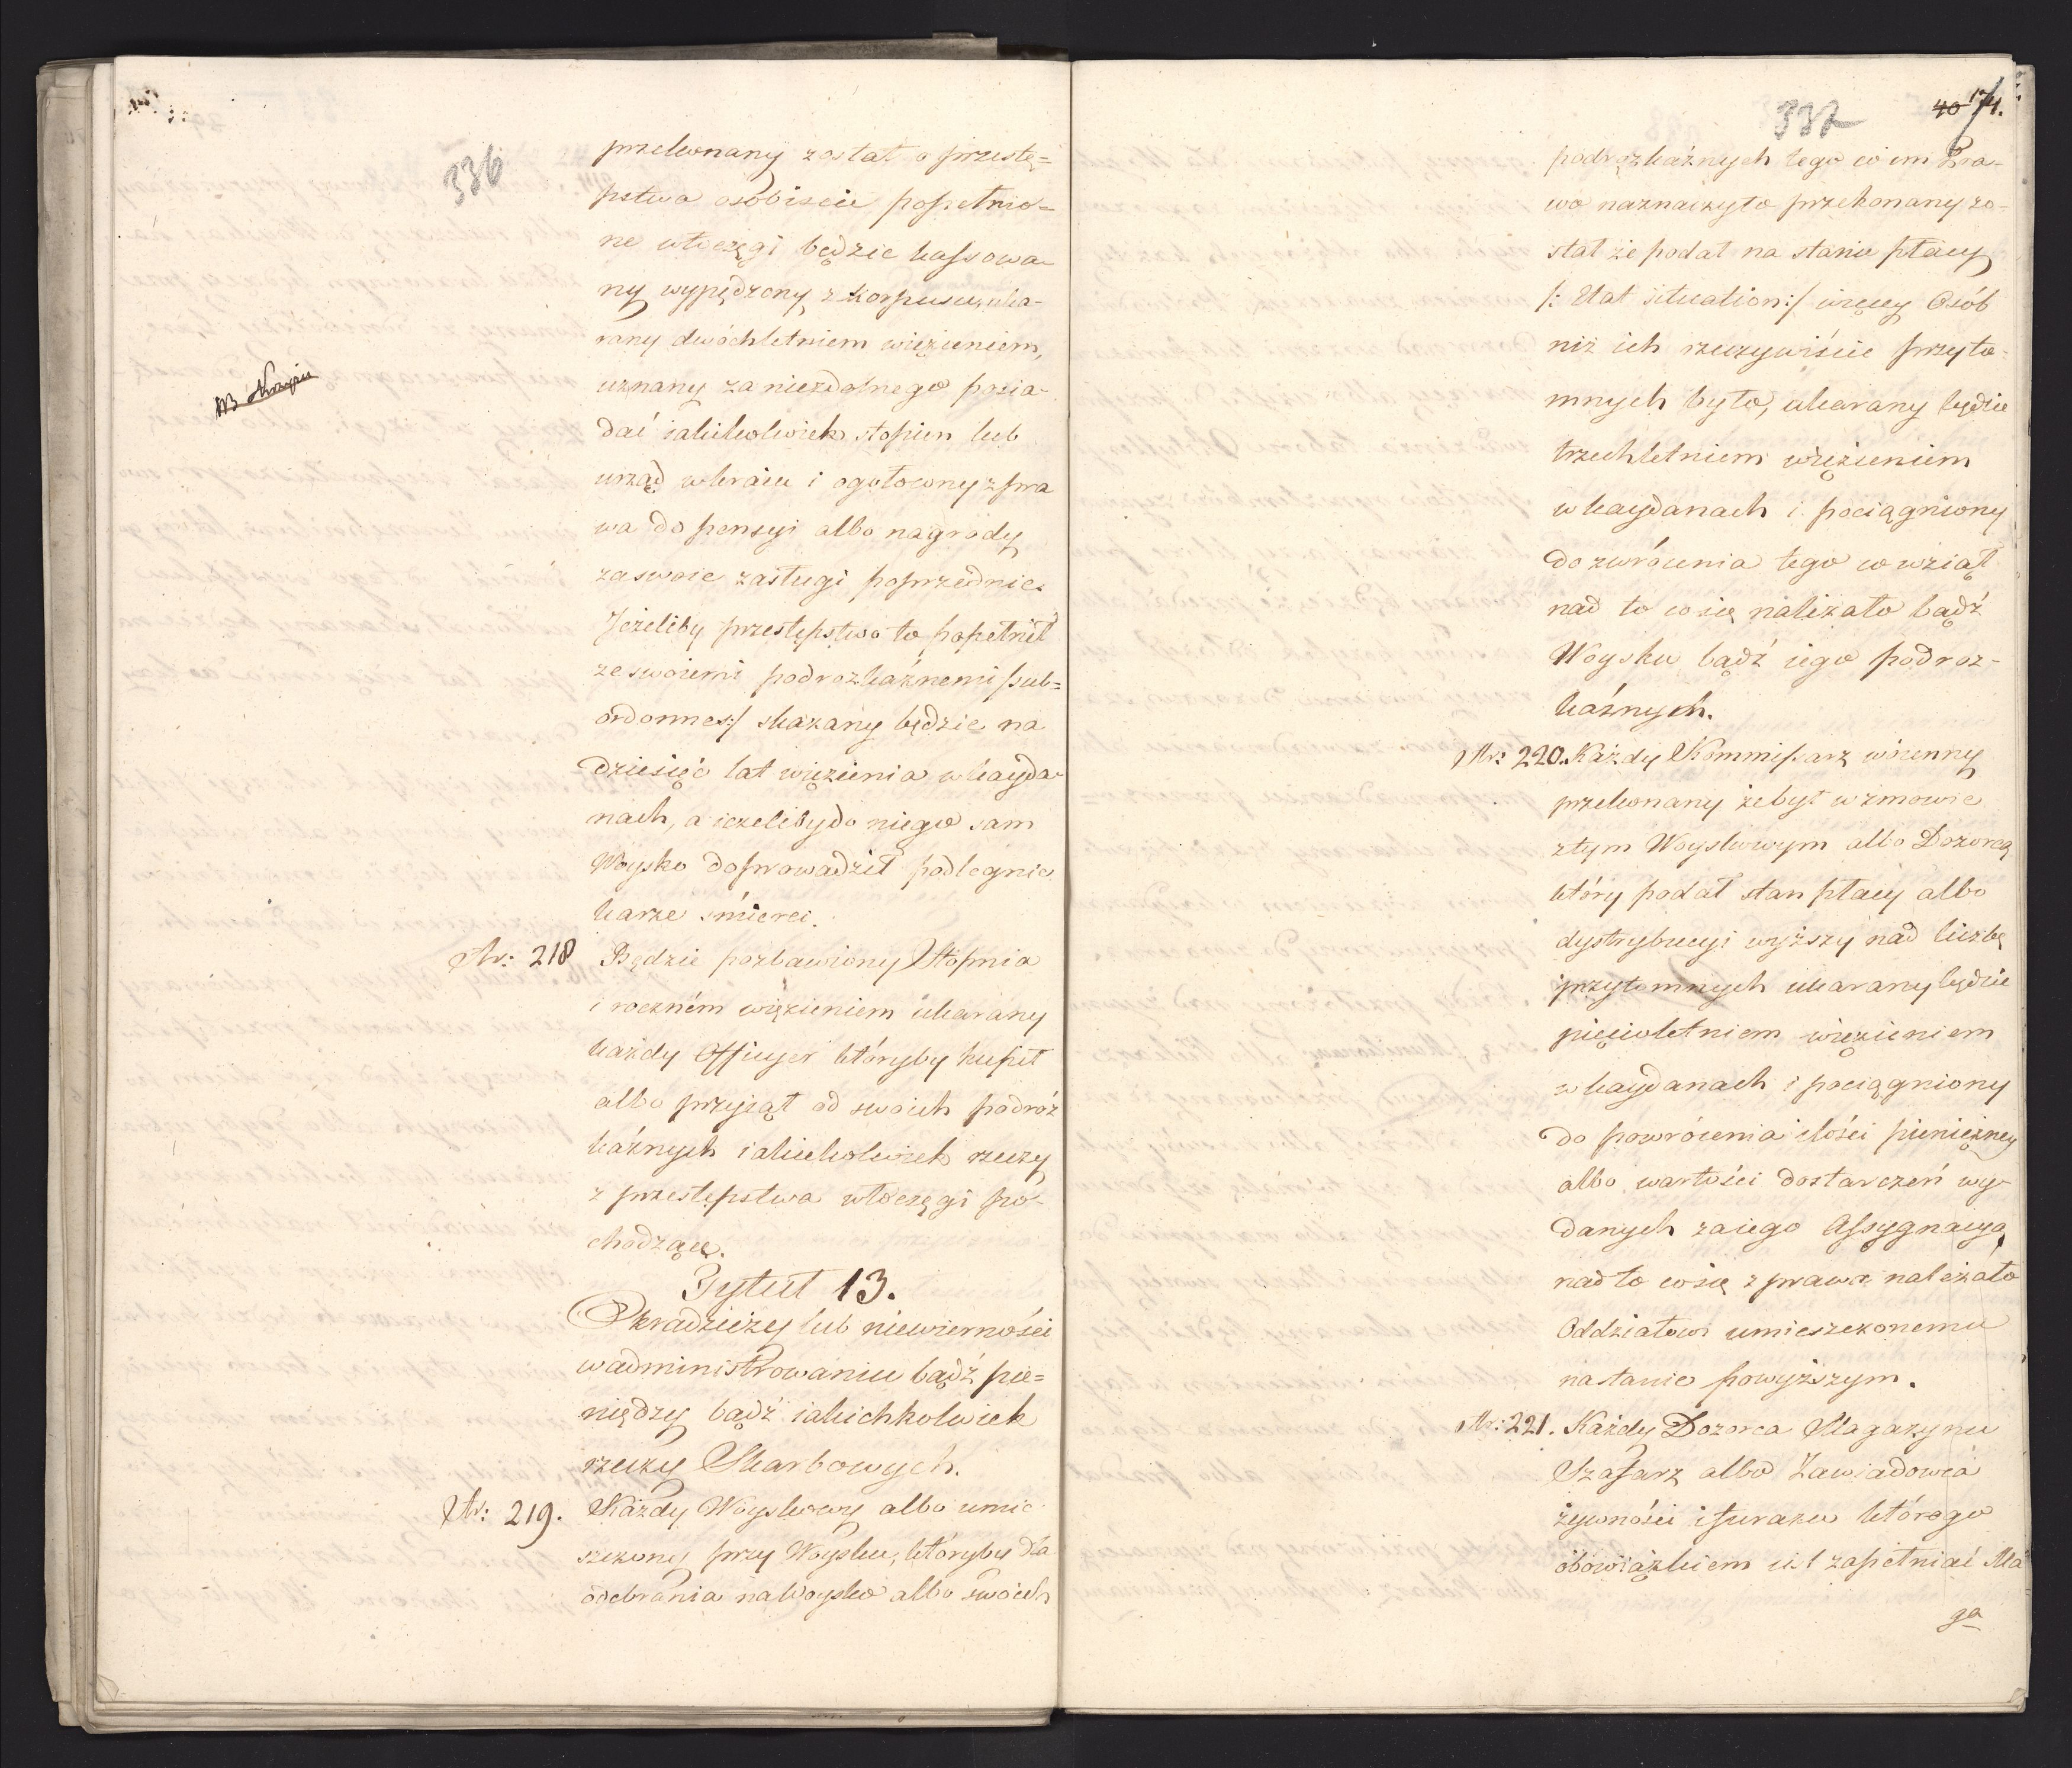 336
przekonany został o przestę=
pstwa osobiście popełnio=
ne włóczęgi będzie kassowa-
ny wypędzony z Korpusu, uka-
rany dwóchletniem więzieniem,
uznany za niezdolnego posia-
dać iakikolwiek stopien lub
urząd w kraiu i ogołocony z pra
wa do pensyi albo nagrody
za swoie zasługi poprzednie.
Jeżeliby przestępstwo to popełnił
ze swoiemi podrozkaźnemi /sub=
ordonnes:/ skazany będzie na
dziesięć lat więzienia w kayda-
nach, a ieżeliby do niego sam
Woysko doprowadził podlegnie
karze śmierci.
Ar: 218 Będzie pozbawiony Stopnia
i roczném więzieniem ukarany
każdy Officyer któryby kupił
albo przyiął od swoich podróz
kaźnych iakiekolwiek rzeczy
z przestępstwa włóczęgi po-
chodzące.
Tytuł 13.
O kradzieży lub niewierności
w administrowaniu bądź pie=
niędzy bądź iakichkolwiek
rzeczy Skarbowych.
Ar: 219. Każdy Woyskowy albo umie
szczony przy Woysku, któryby dla
odebrania na Woysko albo swoich
337
40 171.
podrozkaźnych tego co im Pra-
wo naznaczyło przekonany zo-
stał że podał na stanie płacy
/: Etat situation:/ więcey Osób
niż ich rzeczywiście przyto-
mnych było, ukarany będzie
trzechletniem więzieniem
w kaydanach i pociągniony
do zwrócenia tego co wziął
nad to co się należało bądź
Woysku bądź iego podroz-
kaźnych.
Ar: 220. Każdy Kommissarz woienny
przekonany że był w zmowie
z tym Woyskowym albo Dozorcą
który podał stan płacy albo
dystrybucyi wyższy nad liczbę
przytomnych ukarany będzie
pięcioletniem więzieniem
w kaydanach i pociągniony
do powrócenia ilości pieniężney
albo wartości dostarczeń wy-
danych za iego Assygnacyą
nad to co się z prawa należało
Oddziałowi umieszczonemu
na stanie powyższym.
Ar: 221. Każdy Dozorca Magazynu
Szafarz albo Zawiadowca
żywności i furażu którego
obowiązkiem iest zapełniać Ma
ga